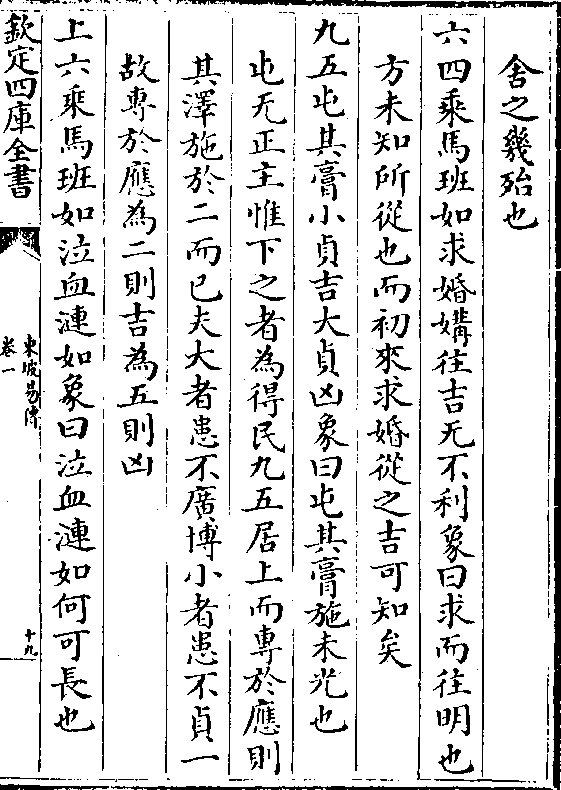 舍之幾殆也
六四乘馬班如求婚媾往吉无不利象曰求而往明也
方未知所從也而初來求婚從之吉可知矣
九五屯其膏小貞吉大貞凶象曰屯其膏施未光也
屯无正主惟下之者為得民九五居上而專於應則
其澤施於二而已夫大者患不廣博小者患不貞一
故專於應為二則吉為五則凶
上六乘馬班如泣血漣如象曰泣血漣如何可長也
欽定四庫全書
東坡易傳
卷一
十九